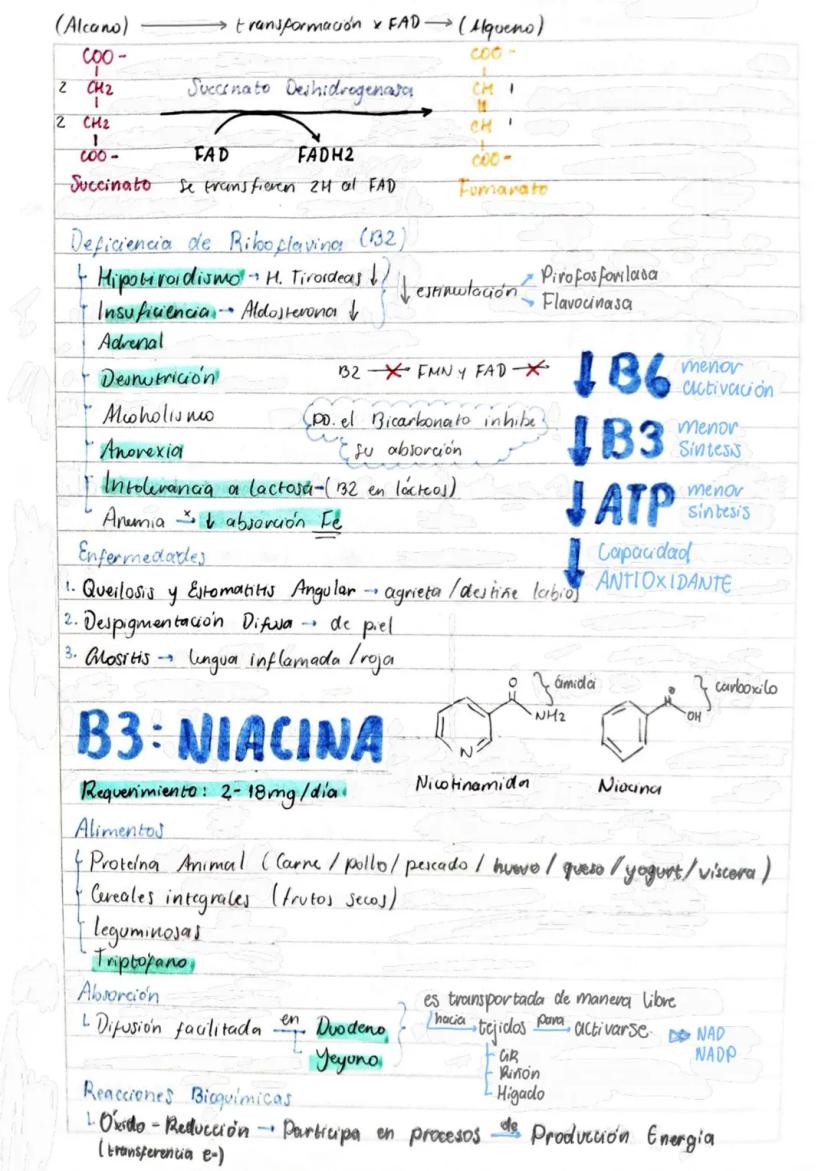 (Alcano) → transformación x FAD → (Alqueno)
COO -
COO -
2 CH2
Succinato Deshidrogenasa
CH 1
2 CH2
CH 1
COO-
FAD FADH2
COO-
Succinato se transfieren 2H al FAD Fumarato
Deficiencia de Riboflavina (B2)
Hipotiroidismo → H. Tiroideas ↓
↓ estimulación
Pirofosforilasa
Flavocinasa
Insuficiencia → Aldosterona ↓
Adrenal
Desnutrición
B2 → FMN y FAD →
↓ B6 menor activación
Alcoholismo
po. el Bicarbonato inhibe
su absorción
↓ B3 menor síntesis
Anorexia
Intolerancia a lactosa-(B2 en lácteos)
↓ ATP menor síntesis
Anemia x→ ↓ absorción Fe
Enfermedades
↓ Capacidad
ANTIOXIDANTE
1. Queilosis y Estomatitis Angular → agrieta/destiñe labios
2. Despigmentación Difusa → de piel
3. Glositis → lengua inflamada/roja
B3: NIACINA
O } amida
NH2
N
Nicotinamida
} carboxilo
OH
Niacina
Requerimiento: 2-18mg/día
Alimentos
Proteína Animal (Carne / pollo/ pescado / huevo / queso / yogurt/ víscera)
Cereales integrales (frutos secos)
Leguminosas
Triptófano
Absorción
Difusión facilitada en Duodeno
Yeyuno
es transportada de manera libre
hacia → tejidos para → activarse
NAD
NADP
GR
Riñón
Hígado
Reacciones Bioquímicas
Óxido - Reducción → Participa en procesos de → Producción Energía
(transferencia e-)